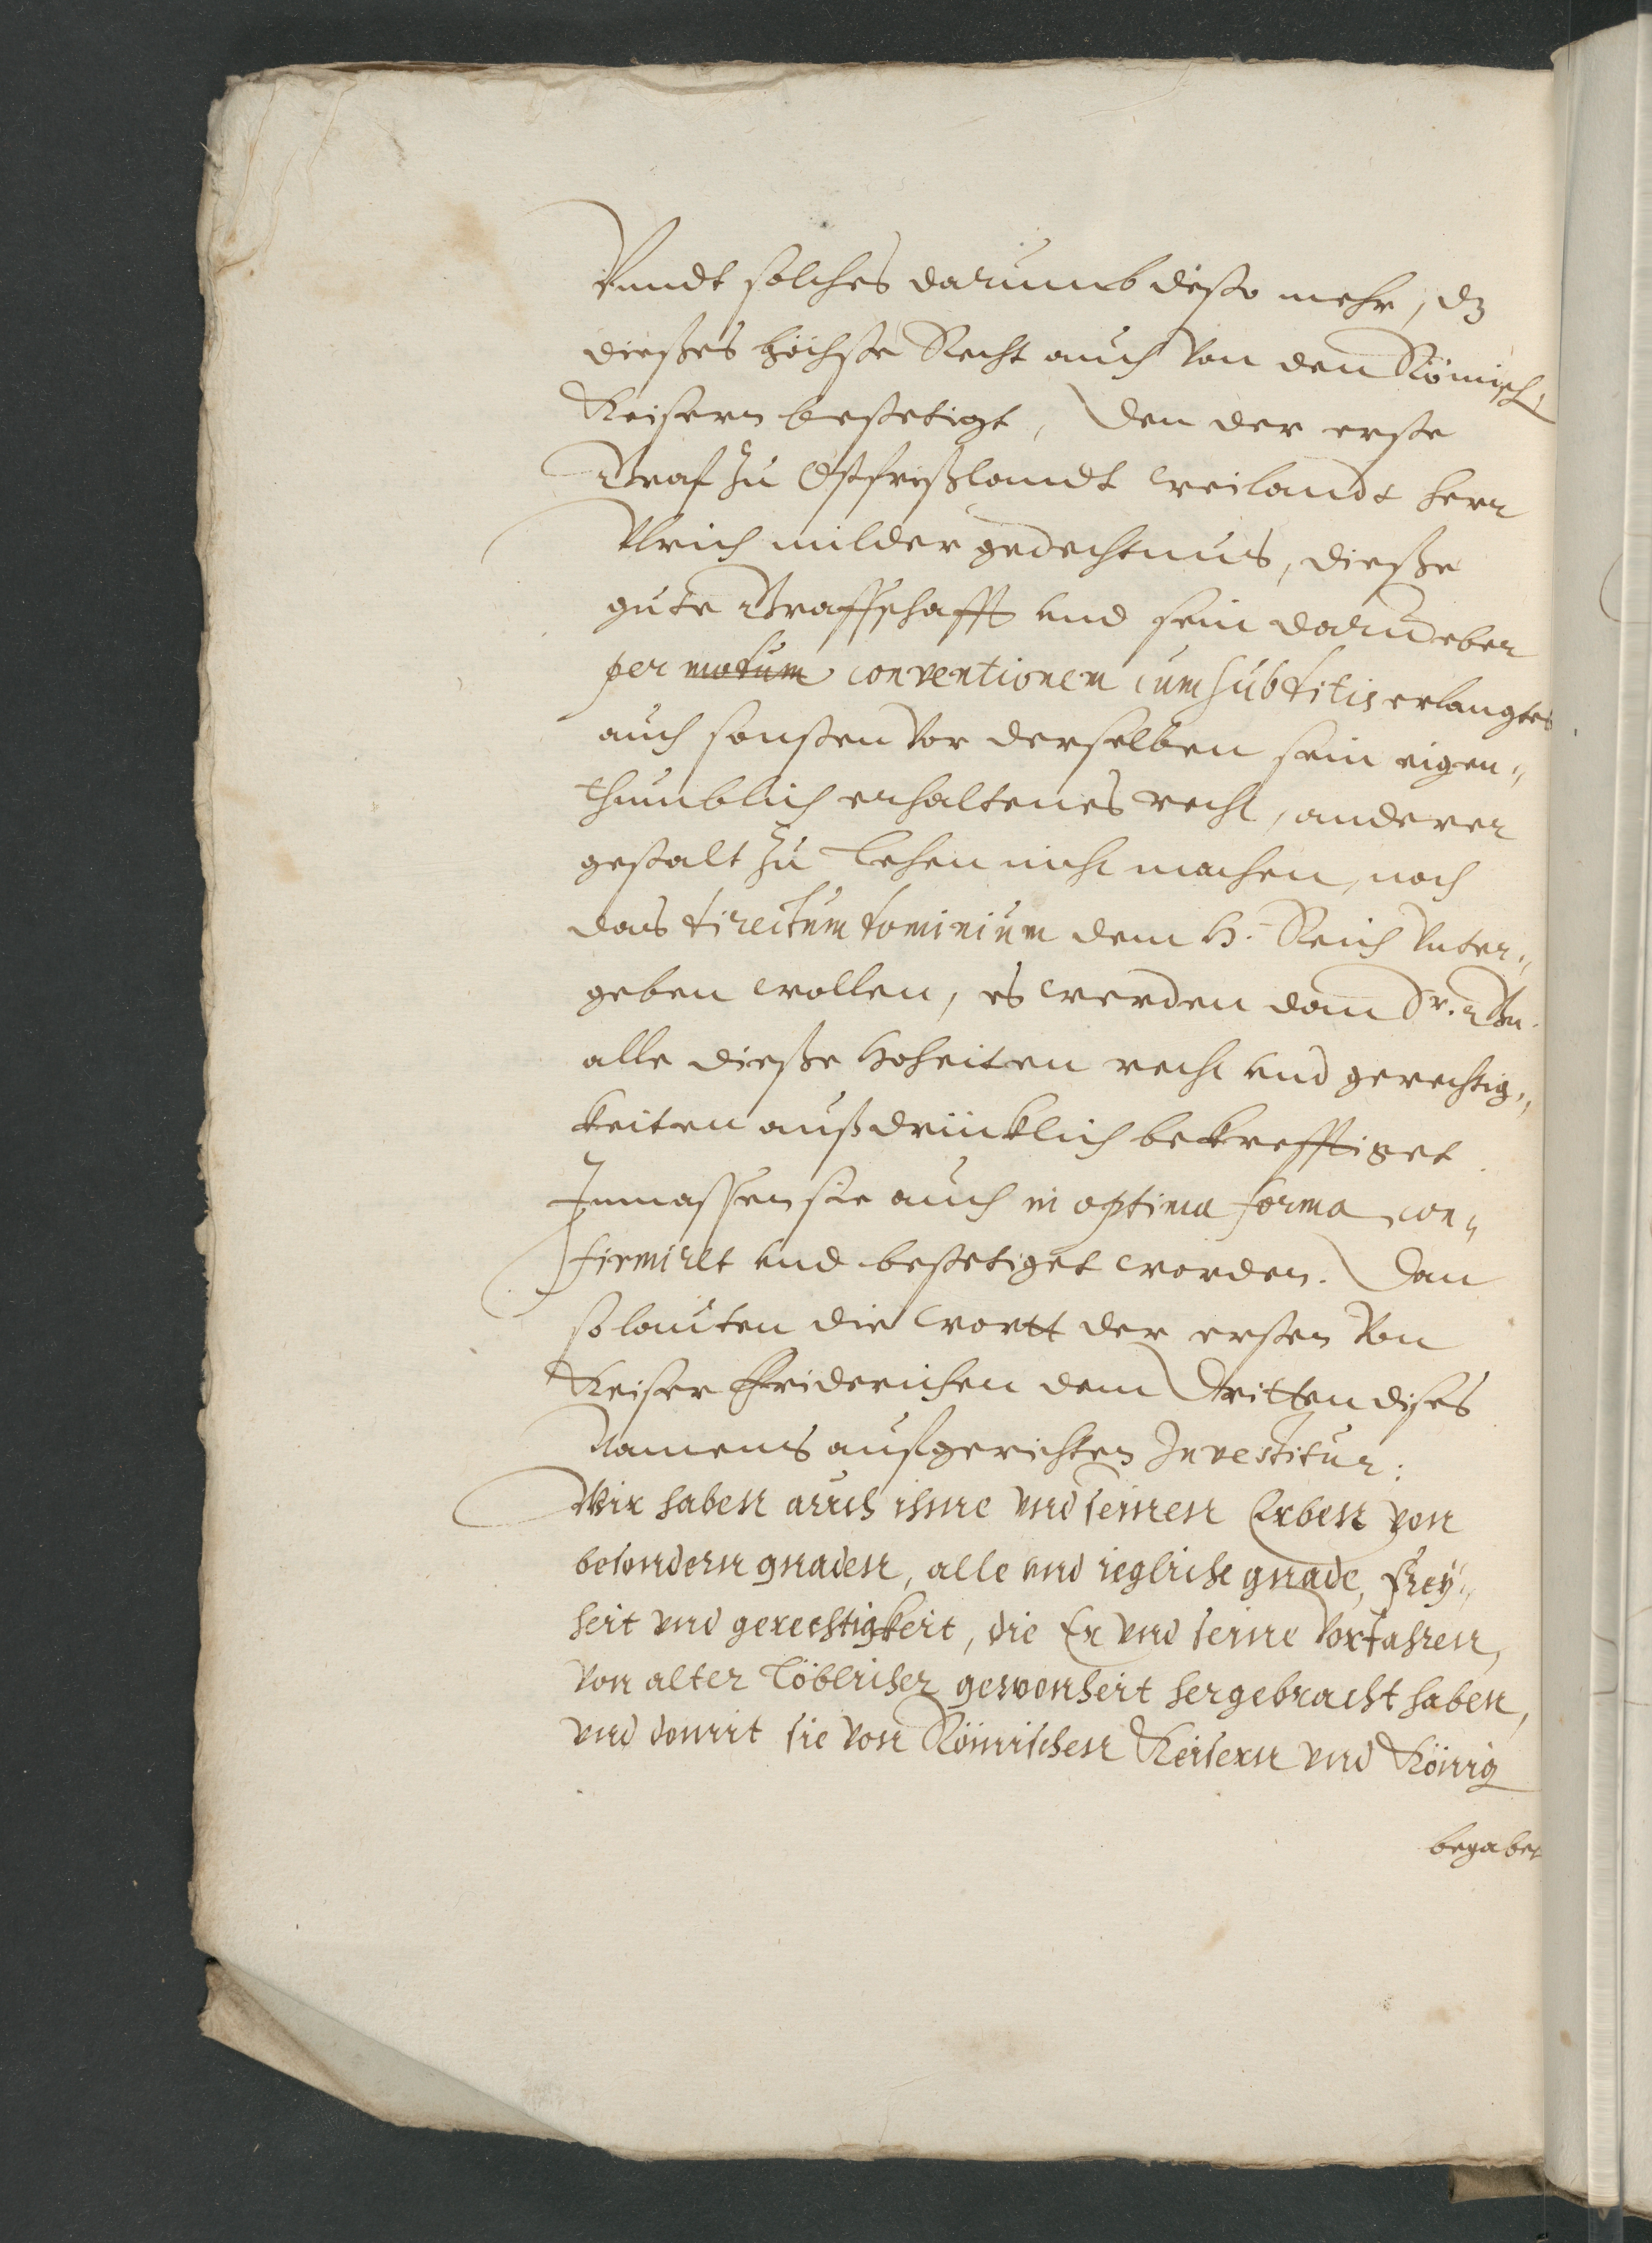 Vnndt solches darumb desto mehr, dz
dießes höchste Recht auch von den Römisch
Keisern bestetigt, Den der erste
Graf zu Ostfrießlandt weilandt herr
Vlrich milder gedechtnus, dieße
gute Graffschafft vnd sein darueber
per motum conventionem cum subditis erlangtes
auch sonsten vor derselben sein eigen„
thumblich erhaltenes recht, anderer
gestalt zu Lehen nicht machen, noch
das directum dominium dem H. Reich vnter„
geben wollen, es werden dan Sr. Gn.
alle dieße Hoheiten recht vnd gerechtig„
keiten außdrücklich bekrefftiget
Inmassen sie auch in optima forma con„
firmirt vnd bestetiget worden. Dan
so lauten die wortt der ersten von
Keiser Friderichen dem Dritten dises
Namens außgerichten Investitur:
Wir haben auch ihme vnd seinen Erben von
besondern gnaden, alle vnd iegliche gnade, Frey„
heit vnd gerechtigkeit, die Er vnd seine Vorfahren,
von alter Löblicher gewonheit hergebracht haben,
vnd domit sie von Römischen Keisern vnd König
begabet